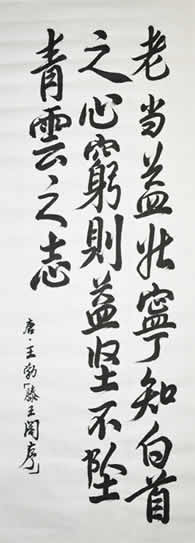 老当益壮寧知白首
之心窮則益坚不坠
青雲之志
唐·王勃滕王阁序